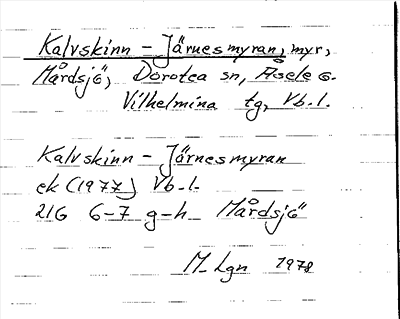 Kalvskinn - Järnesmyran, myr,
Mårdsjö, Dorotea sn, Åsele o.
Vilhelmina tg, Vb.l.
Kalvskinn - Järnesmyran
ek (1977) Vb.l.
21G 6-7 g-h Mårdsjö
M Lgn 1978